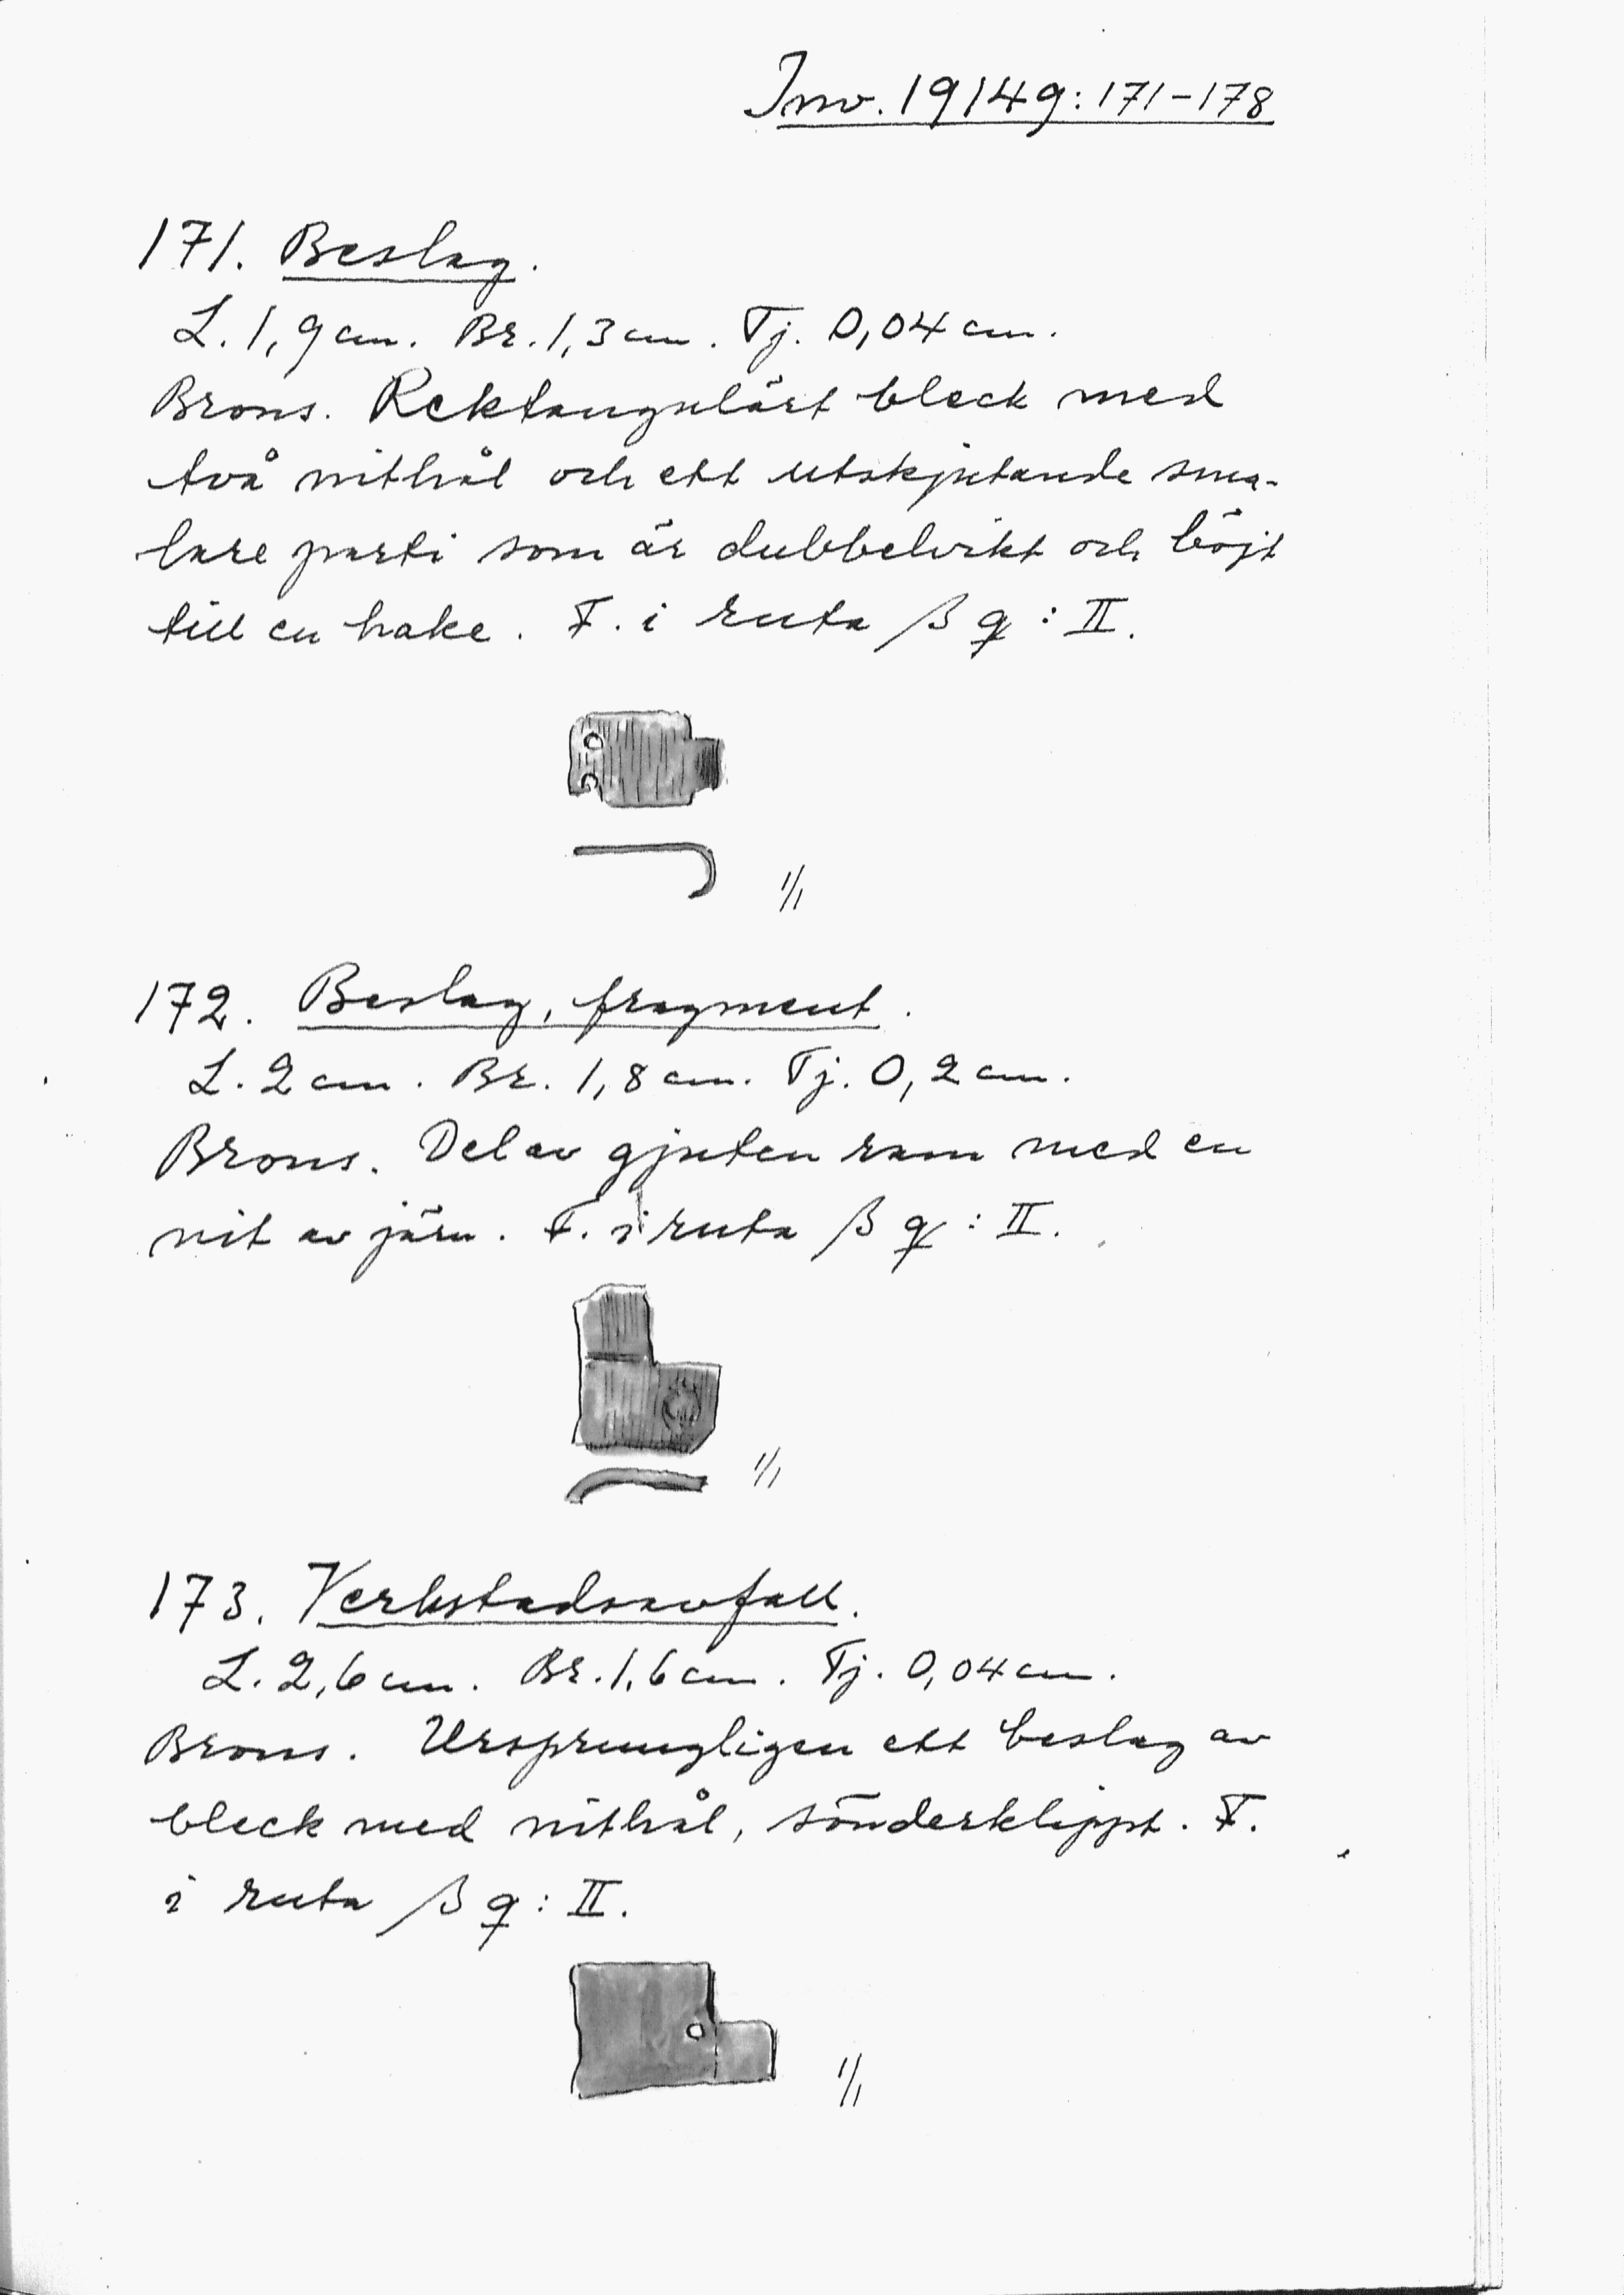 Inv. 19149:171-178
171. Beslag.
L. 1,9 cm. Br. 1,3 cm. Tj. 0,04 cm.
Brons. Rektangulärt bleck med
två nithål och ett utskjutande sma-
lare parti som är dubbelvikt och böjt
till en hake. F. i ruta β q : II.
1/1
172. Beslag, fragment.
L. 2 cm. Br. 1,8 cm. Tj. 0,2 cm.
Brons. Del av gjuten ram med en
nit av järn. F. i ruta β q : II.
1/1
173. Verkstadsavfall.
L. 2,6 cm. Br. 1,6 cm. Tj. 0,04 cm.
Brons. Ursprungligen ett beslag av
bleck med nithål, sönderklippt. F.
i ruta β q : II.
1/1